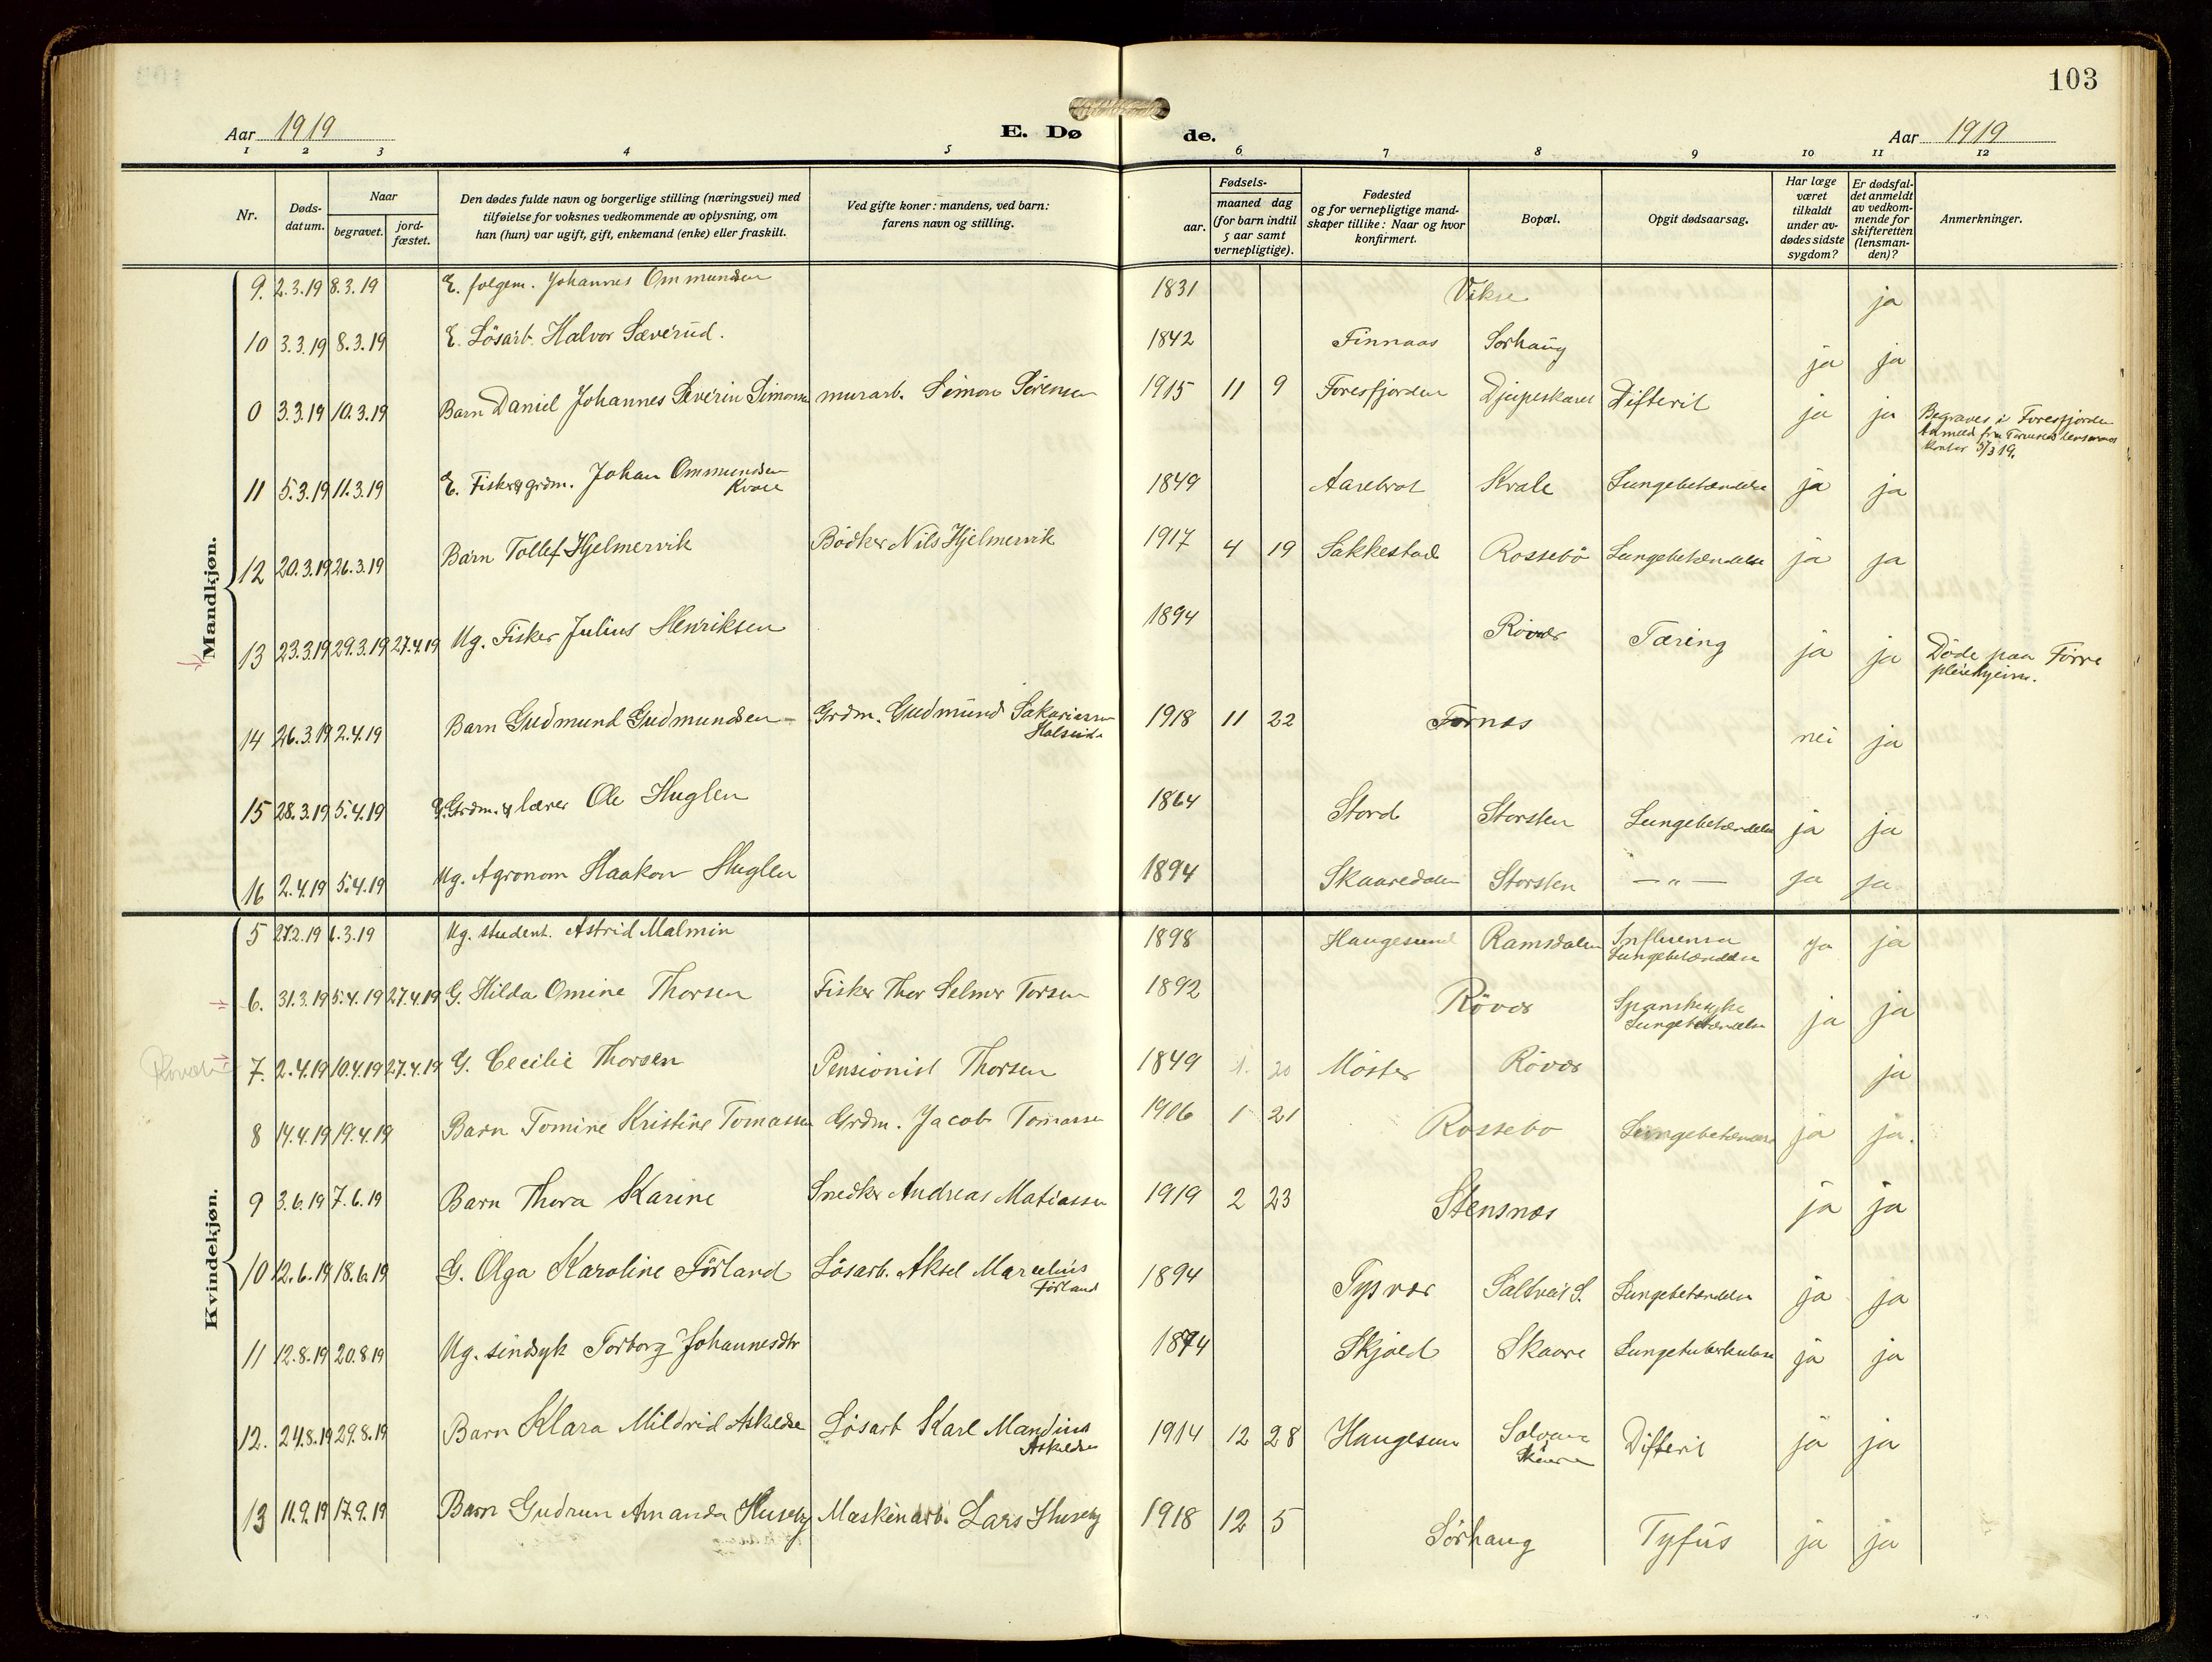 103
Aar 1919
E. Dø de.
Aar 1919
1 2 3 4 5 6 7 8 9 10 11 12
Nr.
Døds-datum.
Naar
begravet.
jord-fæstet.
Den dødes fulde navn og borgerlige stilling (næringsvei) med
tilføielse for voksnes vedkommende av oplysning, om
han (hun) var ugift, gift, enkemand (enke) eller fraskilt.
Ved gifte koner: mandens, ved barn:
farens navn og stilling.
Fødsels-
aar.
maaned dag
(for barn indtil
5 aar samt
vernepligtige).
Fødested
og for vernepligtige mand-
skaper tillike: Naar og hvor
konfirmert.
Bopæl.
Opgit dødsaarsag.
Har læge
været
tilkaldt
under av-
dødes sidste
sygdom?
Er dødsfal-
det anmeldt
av vedkom-
mende for
skifteretten
(lensman-
den)?
Anmerkninger.
Mandkjøn.
9. 2.3.19 8.3.19 E. folgem. Johannes Ommundsen 1831 Vikse ja
10 3.3.19 8.3.19 E. Lösarb. Halvor Sæverud. 1842 Finnaas Sørhaug ja ja
0 3.3.19 10.3.19 Barn Daniel Johannes Severin Simonsen murarb. Simon Sörensen 1915 11 9 Foresfjorden Djupeskaret Difterit ja ja Begraves i Foresfjorden
kontor 5/3 19.
11 5.3.19 11.3.19 E. Fisker & grdm. Johan Ommundsen
Kvale 1849 Aarebrot Kvale Lungebetændelse ja ja
12 20.3.19 26.3.19 Barn Tollef Hjelmervik Bödker Nils Hjelmervik 1917 4 19 Sakkestad Rossebö Lungebetændelse ja ja
13 23.3.19 29.3.19 27.4.19 Ug. Fisker Julius Henriksen 1894 Rövær Tæring ja ja Döde paa Förre
pleiehjem.
14 26.3.19 2.4.19 Barn Gudmund Gudmundsen - Grdm. Gudmund Sakariassen
1918 11 22 Tornes nei ja
15 28.3.19 5.4.19 G. Grdm. & lærer Ole Huglen 1864 Stord Storsten Lungebetændelse ja ja
16 2.4.19 5.4.19 Ug. Agronom Haakon Huglen 1894 Skaaredalen Storsten — " — ja ja
Kvindekjøn.
5 27.2.19 6.3.19 Ug. student. Astrid Malmin 1898 Haugesund Ramsdalen Influensa
Lungebetændelse ja ja
6. 31.3.19 5.4.19 27.4.19 G. Hilda Omine Thorsen Fisker Thor Selmer Torsen 1892 Rövær Spanskesyke
Lungebetændelse ja ja
7. 2.4.19 10.4.19 27.4.19 G. Cecilie Thorsen Pensionist Thorsen 1849 1. 20 Möster Rövær ja
8 14.4.19 19.4.19 Barn Tomine Kristine Tomassen Grdm. Jacob Tomassen 1906 1 21 Rossebö Lungebetændelse ja ja.
9 3.6.19 7.6.19 Barn Thora Karine Snedker Andreas Matiassen 1919 2 23 Stensnæs ja ja
10 12.6.19 18.6.19 G. Olga Karoline Förland Lösarb. Aksel Marcelius
Förland 1894 Tysvær Saltveit S. Lungebetændelse ja ja
11 12.8.19 20.8.19 Ug. sindsyk Torborg Johannesdtr 1874 Skjold Skaare Lungetuberkulose ja ja
12. 24.8.19 29.8.19 Barn Klara Mildrid Askeldsen Lösarb Karl Mandius
Askeldsen 1914 12 28 Haugesun Solvang
Skaare Difterit ja ja
13 11.9.19 17.9.19 Barn Gudrun Amanda Huseby Maskinarb. Lars Huseby 1918 12 5 Sörhaug Tyfus ja ja